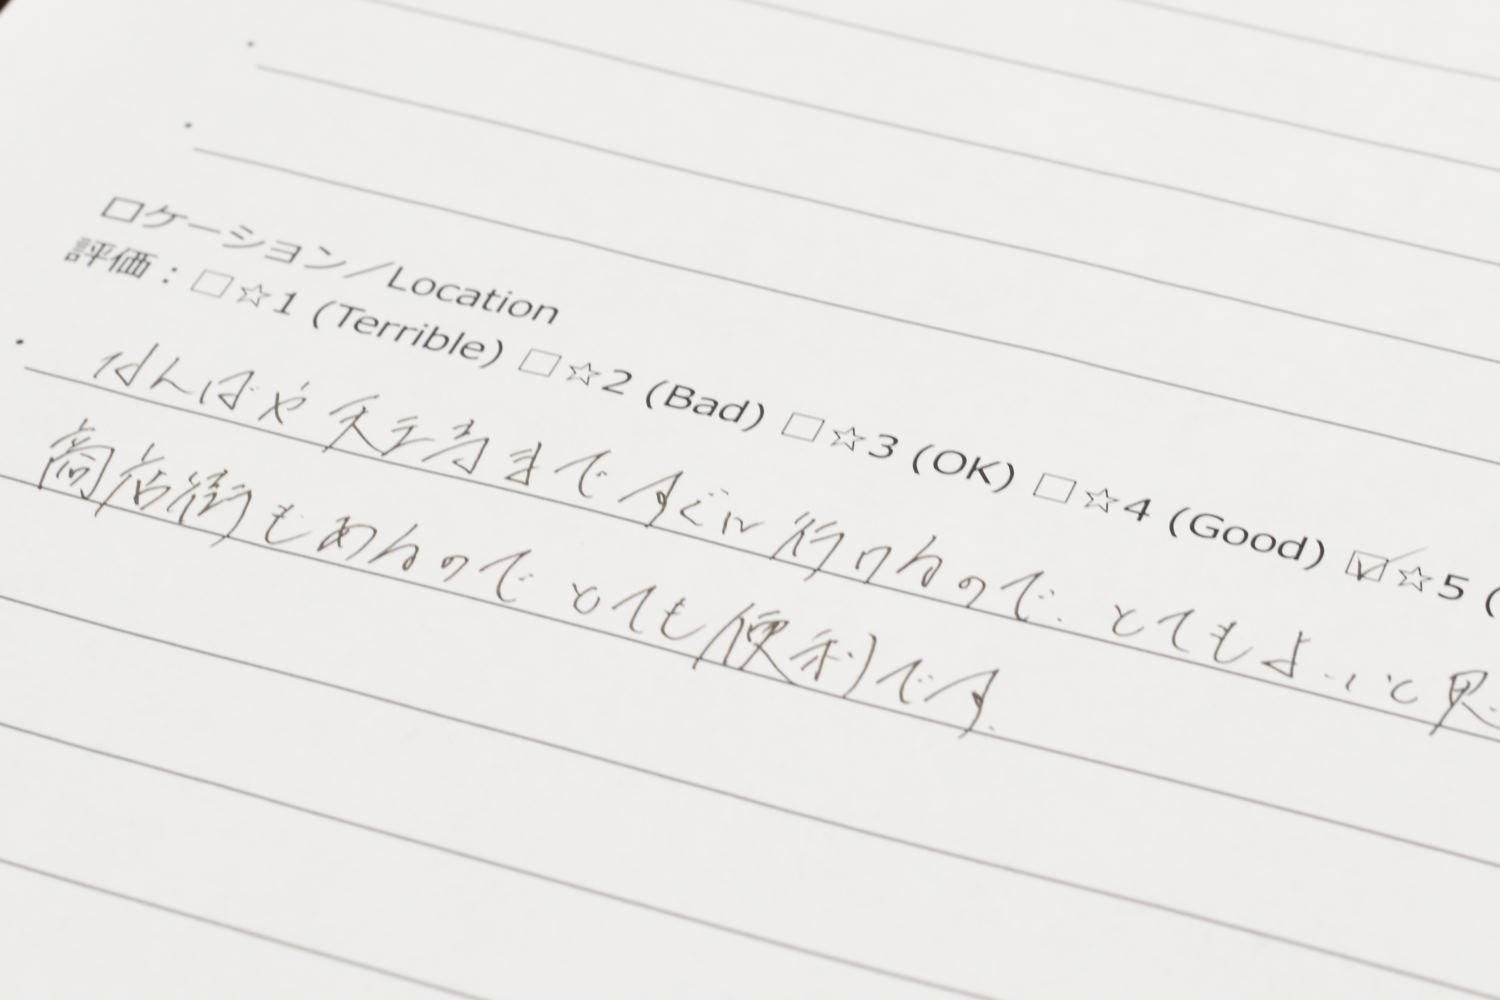 ロケーション／Location
評価：□☆1 (Terrible) □☆2 (Bad) □☆3 (OK) □☆4 (Good) ☑☆5 (
・なんばや天王寺まですぐに行けるので、とてもよいと思
商店街もあるのでとても便利です。